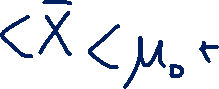 < X̄ < μ₀ +